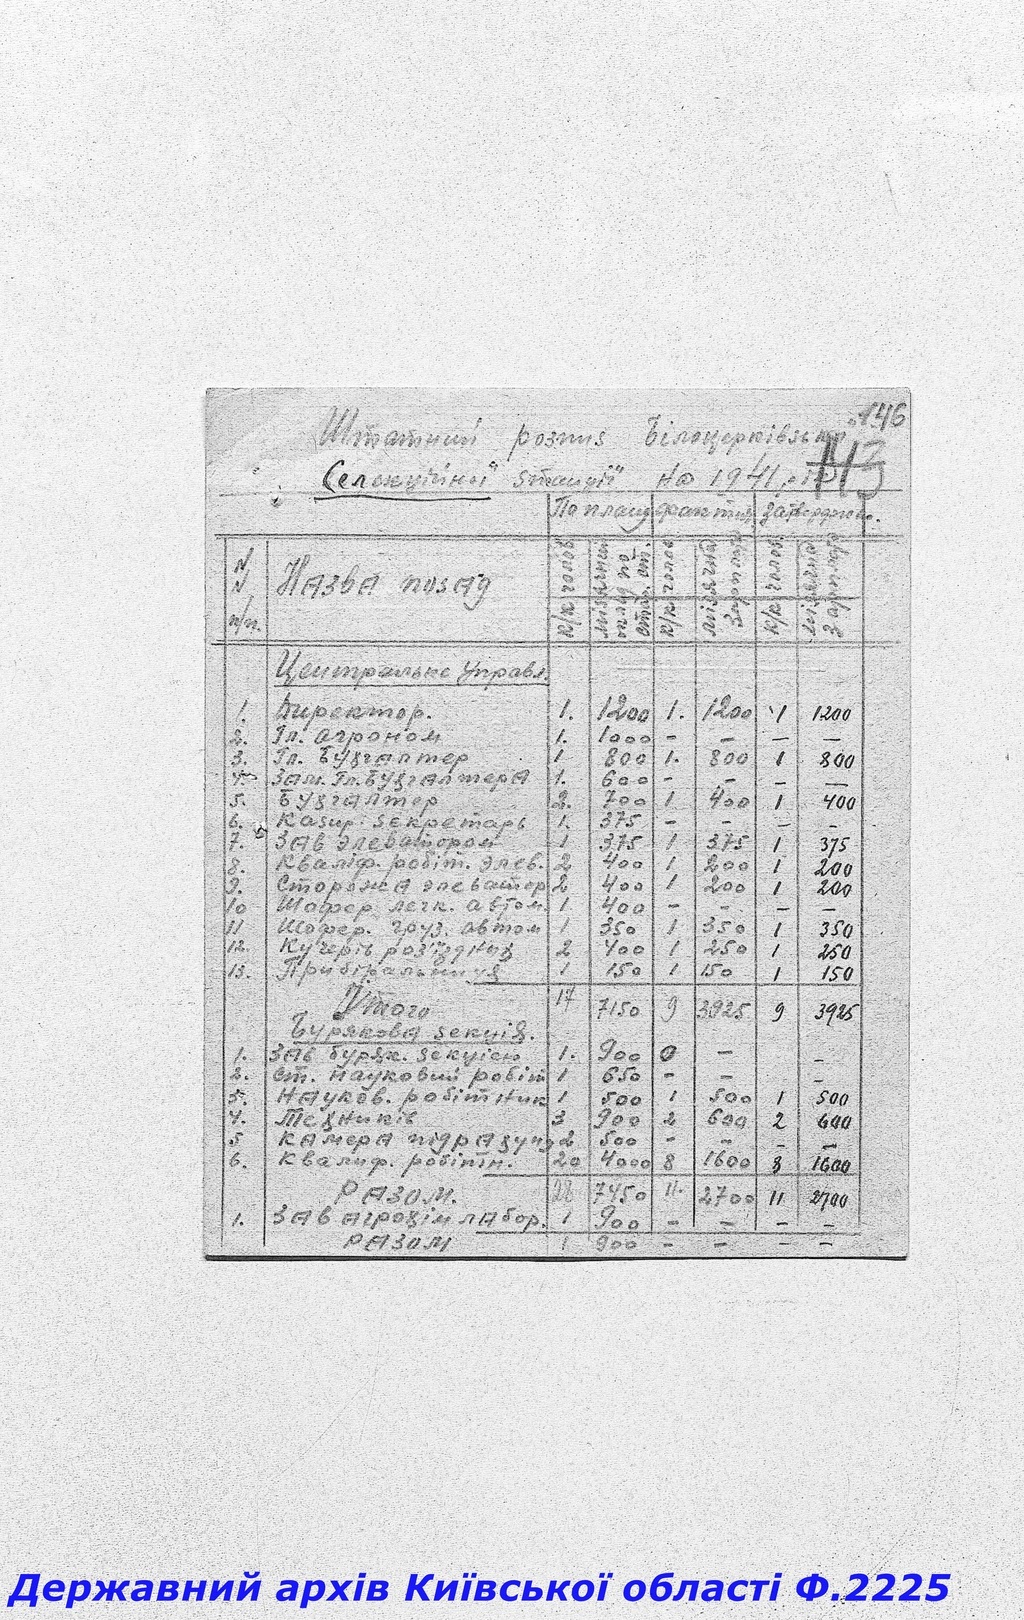 146
Штатний розпис Білоцерківської
143
Селекційної станції на 1941 р.
По плану фактич. затверджено.
N N п/п. Назва посад к/к голов місячний оклад по штат. от. к/к голов місячна зарплата к/к голов. місячна зарплата
Центральне управл.
1. Директор. 1. 1200 1. 1200 1 1200
2. Гл. агроном 1. 1000 - - - -
3. Гл. Бухгалтер 1 800 1. 800 1 800
4. Зам. Гл. Бухгалтера 1. 600 - - - -
5. Бухгалтер 2. 700 1 400 1 400
6. Касир секретарь 1. 375 - - - -
7. Зав элеватором 1 375 1 375 1 375
8. Кваліф. робіт. элев. 2 400 1 200 1 200
9. Сторожа элеватор 2 400 1 200 1 200
10 Шофер легк. автом. 1. 400 - - - -
11 Шофер. груз. автом 1 350 1 350 1 350
12. Кучерів роз'їздних 2 400 1 250 1 250
13. Прибіральниця 1 150 1 150 1 150
Утого 17 7150 9 3925 9 3925
Бурякова секція.
1. Зав буряк. секцією 1. 900 0 - -
2. Ст. науковий робіт 1 650 - - -
3. Науков. робітник 1 500 1 500 1 500
4. Техників 3 900 2 600 2 600
5 Камера підрахунку 2 500 - - - -
6. Квалиф. робітн. 20 4000 8 1600 8 1600
Разом. 28 7450 11. 2700 11 2700
1. Зав агрохім лабор. 1 900 - - - -
Разом 1 900 - - - -
Державний архів Київської області Ф.2225